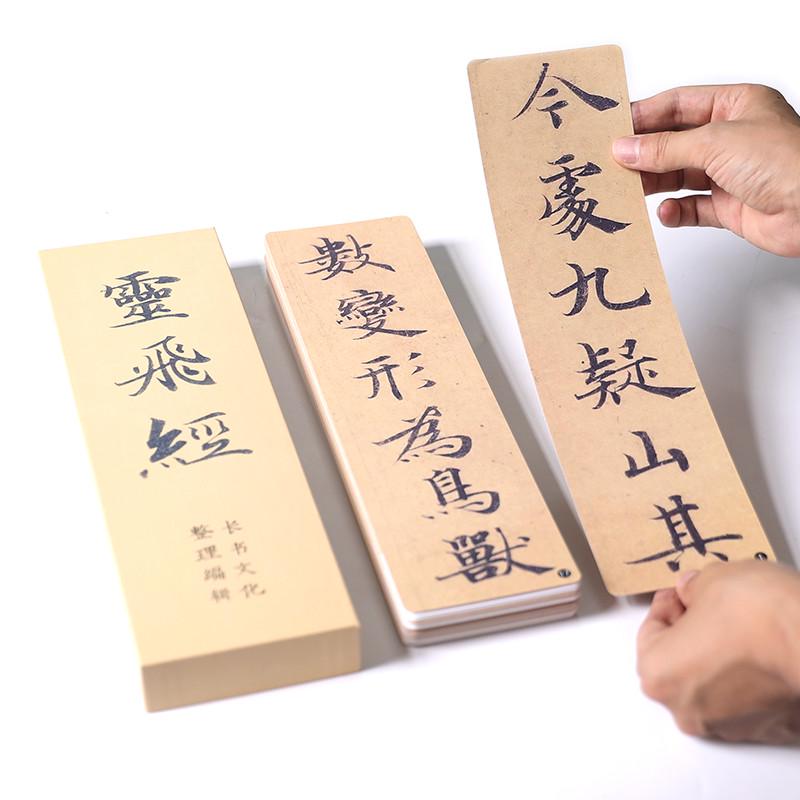 靈飛經
长书文化
整理编辑
數變形為鳥獸
今處九疑山其